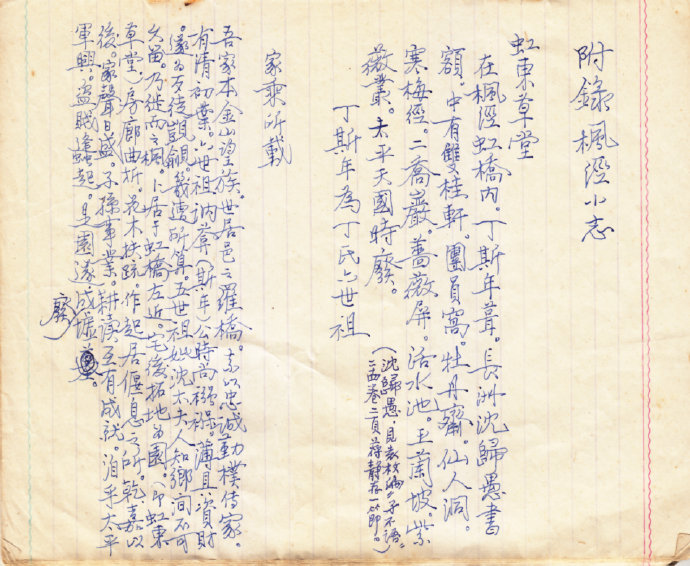 附錄楓涇小志
虹東草堂
在楓涇虹橋內。丁斯年葺。長洲沈歸愚書
額。中有雙桂軒。團員窩。牡丹齋。仙人洞。
寒梅徑。二喬巖。薔薇屏。活水池。玉蘭坡。紫
薇叢。太平天國時廢。
丁斯年為丁氏六世祖
(沈歸愚,見袁枚編"子不語"
二孟卷二頁蔣靜存一節。)
家乘所載
吾家本金山望族。世居邑之羅橋。素以忠誠勤樸傳家。
有清初葉。六世祖訥菴(斯年)公時尚襁褓。薄具資財
遂為歹徒覬覦。幾遭所算。五世祖妣沈太夫人知鄉間不可
久留。乃徙而之楓。卜居于虹橋左近。宅後拓地為園。(即虹東
草堂)房廊曲折。花木扶疏。作起居偃息之所。乾嘉以
後。家聲日盛。子孫事業。耕讀互有成就。洎乎太平
軍興。盜賊蠭起。是園遂成墟
廢